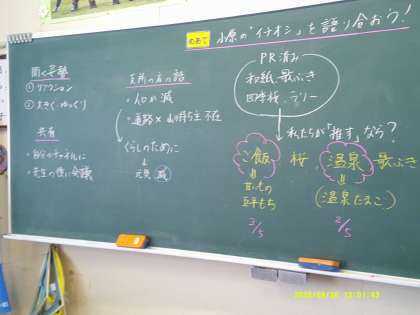 めあて 小原の"イチオシ"を語り合おう!
聞く姿勢
① リアクション
② 大きく ゆっくり
共有
・自分のチャンネルに
・先生の使い会議
支所の方の話
・人口が減
・道路× 山の持ち主 不在
くらしのために
↓
元気 減
PR済み
和紙、歌ぶき
四季桜、ラリー
私たちが"推す"なら?
ご飯 桜、温泉 歌ぶき
五平もち
(温泉たまご)
3/5
2/5